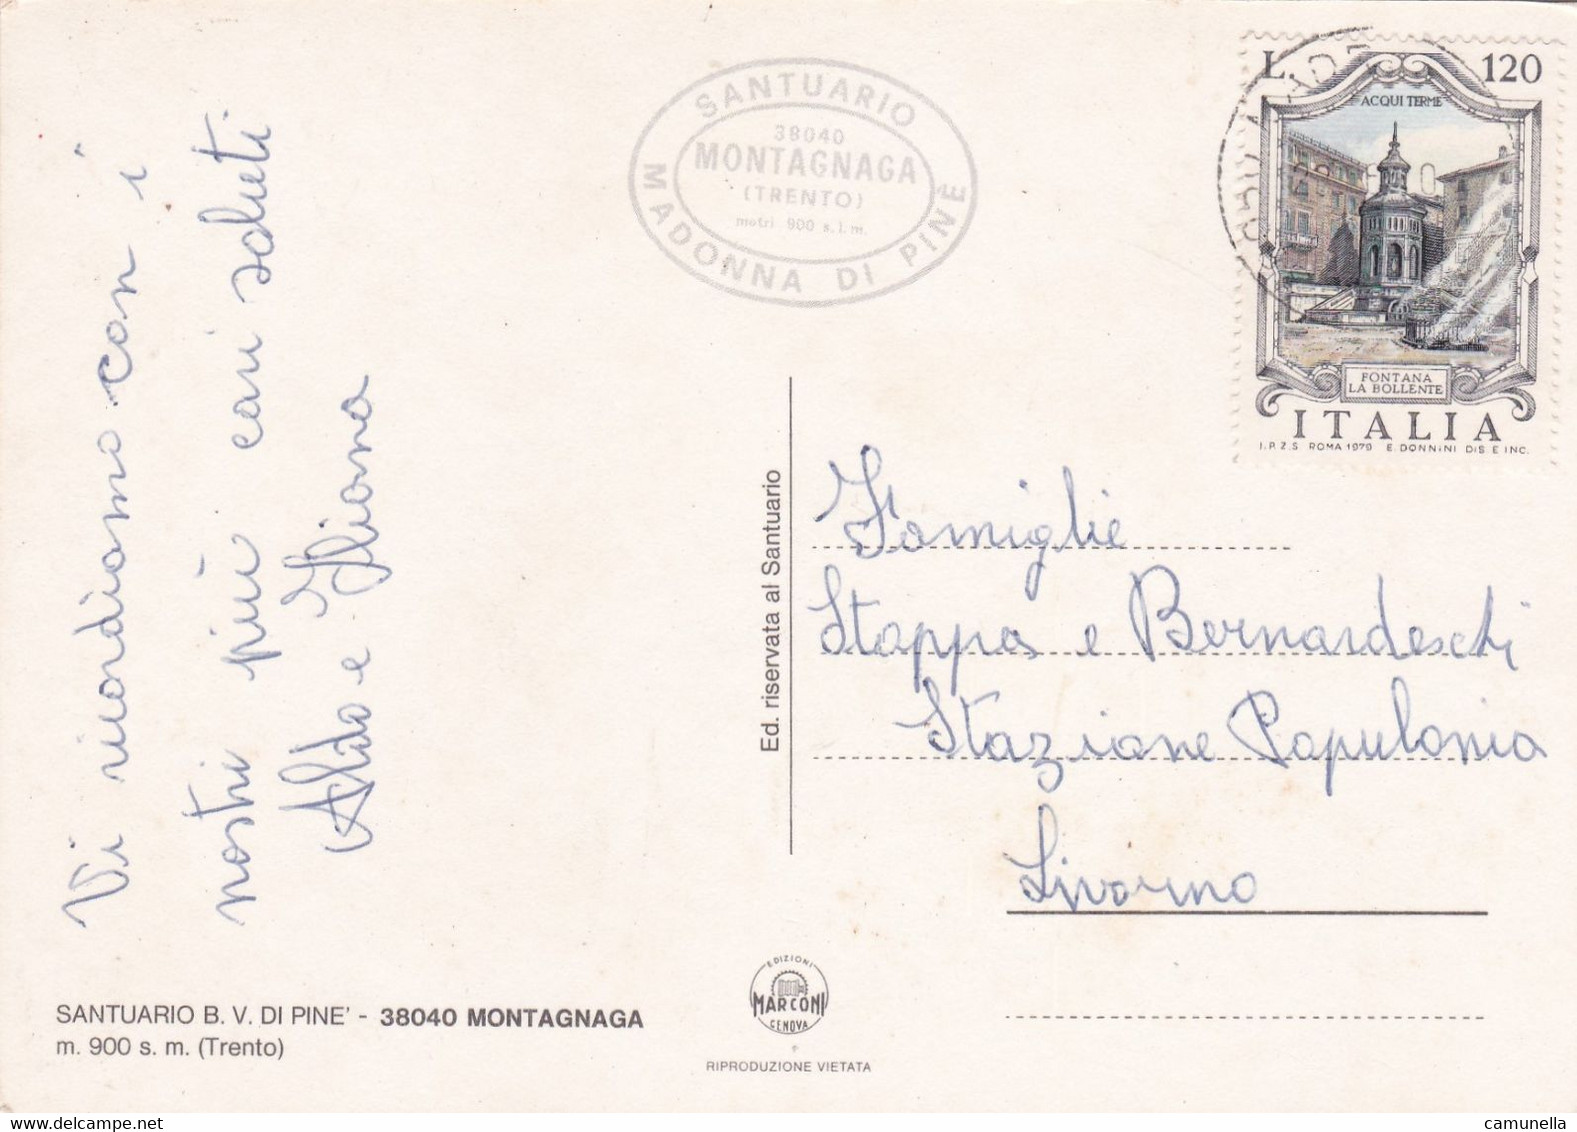 Vi ricordiamo con i
nostri più cari saluti
Aldo e Iliana
SANTUARIO
38040
MONTAGNAGA
(TRENTO)
metri 900 s.l.m.
MADONNA DI PINÈ
L. 120
ACQUI TERME
FONTANA
LA BOLLENTE
ITALIA
I.P.Z.S. ROMA 1979 E. DONNINI DIS. E INC.
Ed. riservata al Santuario
Famiglie
Stappa e Bernardeschi
Stazione Populonia
Livorno
SANTUARIO B. V. DI PINE' - 38040 MONTAGNAGA
m. 900 s. m. (Trento)
EDIZIONI
MARCONI
GENOVA
RIPRODUZIONE VIETATA
camunella